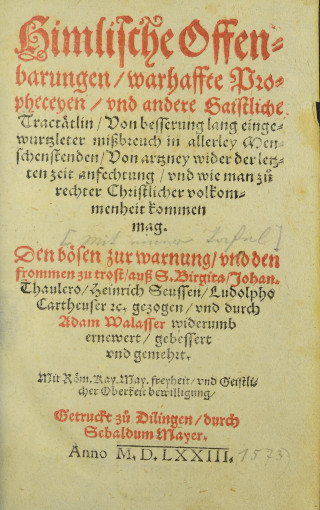 Himlische Offen-
barungen / warhaffte Pro-
pheceyen / vnd andere Gaistliche
Tractätlin / Von besserung lang einge-
wurtzleter mißbreuch in allerley Men-
schenstenden / Von artzney wider der letz-
ten zeit anfechtung / vnd wie man zů
rechter Christlicher volkom-
menheit kommen
mag.
[mit einer Tafel]
Den bösen zur warnung / vnd den
frommen zu trost / auß S. Birgita / Johan.
Thaulero / Heinrich Seussen / Ludolpho
Cartheuser ꝛc. gezogen / vnd durch
Adam Walasser widerumb
ernewert / gebessert
vnd gemehrt.
Mit Röm. Kay. May. freyheit / vnd Geistli-
cher Oberkeit bewilligung /
Getruckt zů Dilingen / durch
Sebaldum Mayer.
Anno M. D. LXXIII. 1573